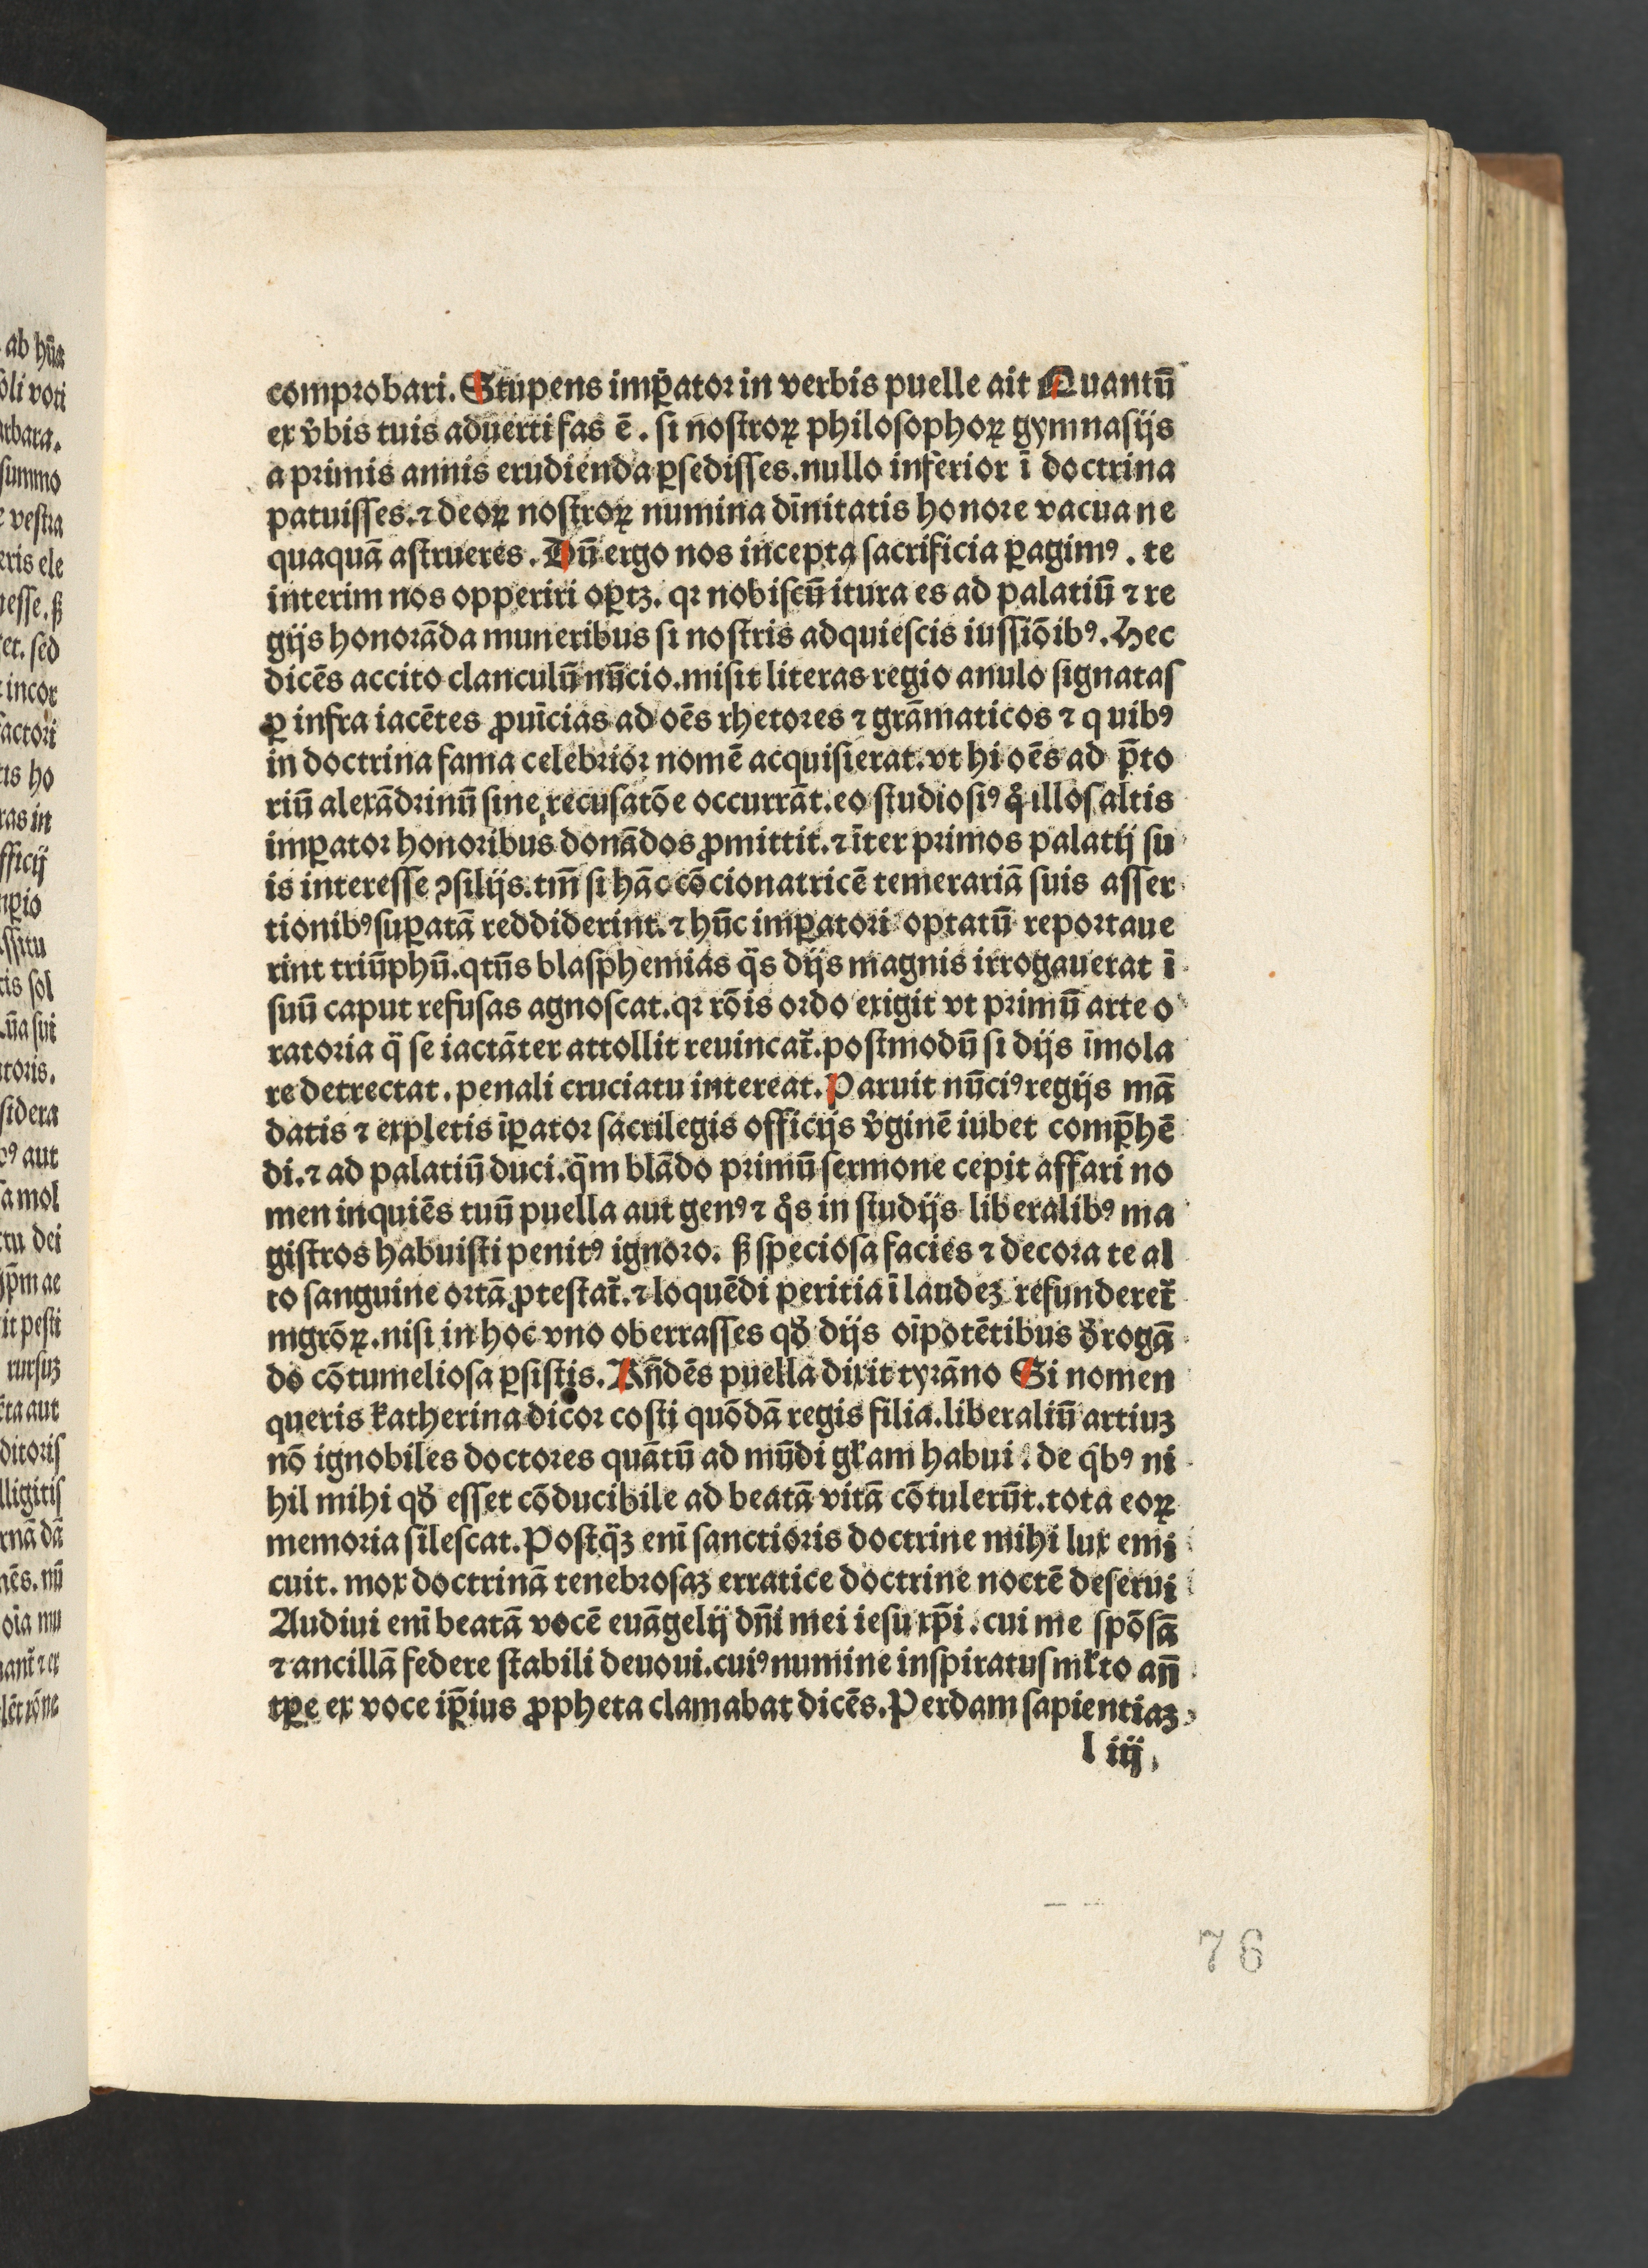 comprobari. Stupens imꝑator in verbis puelle ait Quantū
ex v̓bis tuis aduerti fas ē. si nostroꝝ philosophoꝝ gymnasijs
a primis annis erudienda ꝑsedisses. nullo inferior ī doctrina
patuisses. ⁊ deoꝝ nostroꝝ numina dīnitatis honore vacua ne
quaquā astrueres. Dū ergo nos incepta sacrificia ꝑagimꝰ. te
interim nos opperiri oꝑtꝫ. qꝛ nobiscū itura es ad palatiū ⁊ re
gijs honorāda muneribus si nostris adquiescis iussiōibꝰ. Hec
dicēs accito clanculū nūcio. misit literas regio anulo signatas
ꝑ infra iacētes ꝓuīcias ad oēs rhetores ⁊ grāmaticos ⁊ quibꝰ
in doctrina fama celebrior nomē acquisierat. vt hi oēs ad p̄to
riū alexādrinū sine recusatōe occurrāt. eo studiosiꝰ qͦ illos altis
imꝑator honoribus donādos ꝓmittit. ⁊ īter primos palatij su
is interesse ꝯsilijs. tm̄ si hāc cōcionatricē temerariā suis asser
tionibꝰ suꝑatā reddiderint. ⁊ hūc imꝑatori optatū reportaue
rint triūphū. qtūs blasphemias q̄s dijs magnis irrogauerat ī
suū caput refusas agnoscat. qꝛ rōis ordo exigit vt primū arte o
ratoria q̄ se iactāter attollit reuincat᷑. postmodū si dijs īmola
re detrectat. penali cruciatu intereat. Paruit nūciꝰ regijs mā
datis ⁊ expletis īꝑator sacrilegis officijs v̓ginē iubet comp̄hē
di. ⁊ ad palatiū duci. q̄m blādo primū sermone cepit affari no
men inquiēs tuū puella aut genꝰ ⁊ qͦs in studijs liberalibꝰ ma
gistros habuisti penitꝰ ignoro. ꝭ speciosa facies ⁊ decora te al
to sanguine ortā ꝓtestat᷑. ⁊ loquēdi peritia ī laudeꝫ refunderet᷑
mgrōꝝ. nisi in hoc vno oberrasses qđ dijs oīpotētibus đrogā
do cōtumeliosa ꝑsistis. Rn̄dēs puella dixit tyrāno Si nomen
queris katherina dicor costi quōdā regis filia. liberaliū artiuꝫ
nō ignobiles doctores quātū ad mūdi gl̓iam habui. de qͥbꝰ ni
hil mihi qđ esset cōducibile ad beatā vitā cōtulerūt. tota eoꝝ
memoria silescat. Postq̄ꝫ enī sanctioris doctrine mihi lux emi
cuit. mox doctrinā tenebrosaꝫ erratice doctrine noctē deserui
Audiui enī beatā vocē euāgelij dn̄i mei iesu xp̄i. cui me spōsā
⁊ ancillā federe stabili deuoui. cuiꝰ numine inspiratus ml̓to an̄
tꝑe ex voce ip̄ius ꝓpheta clamabat dicēs. Perdam sapientiaꝫ
l iij
76